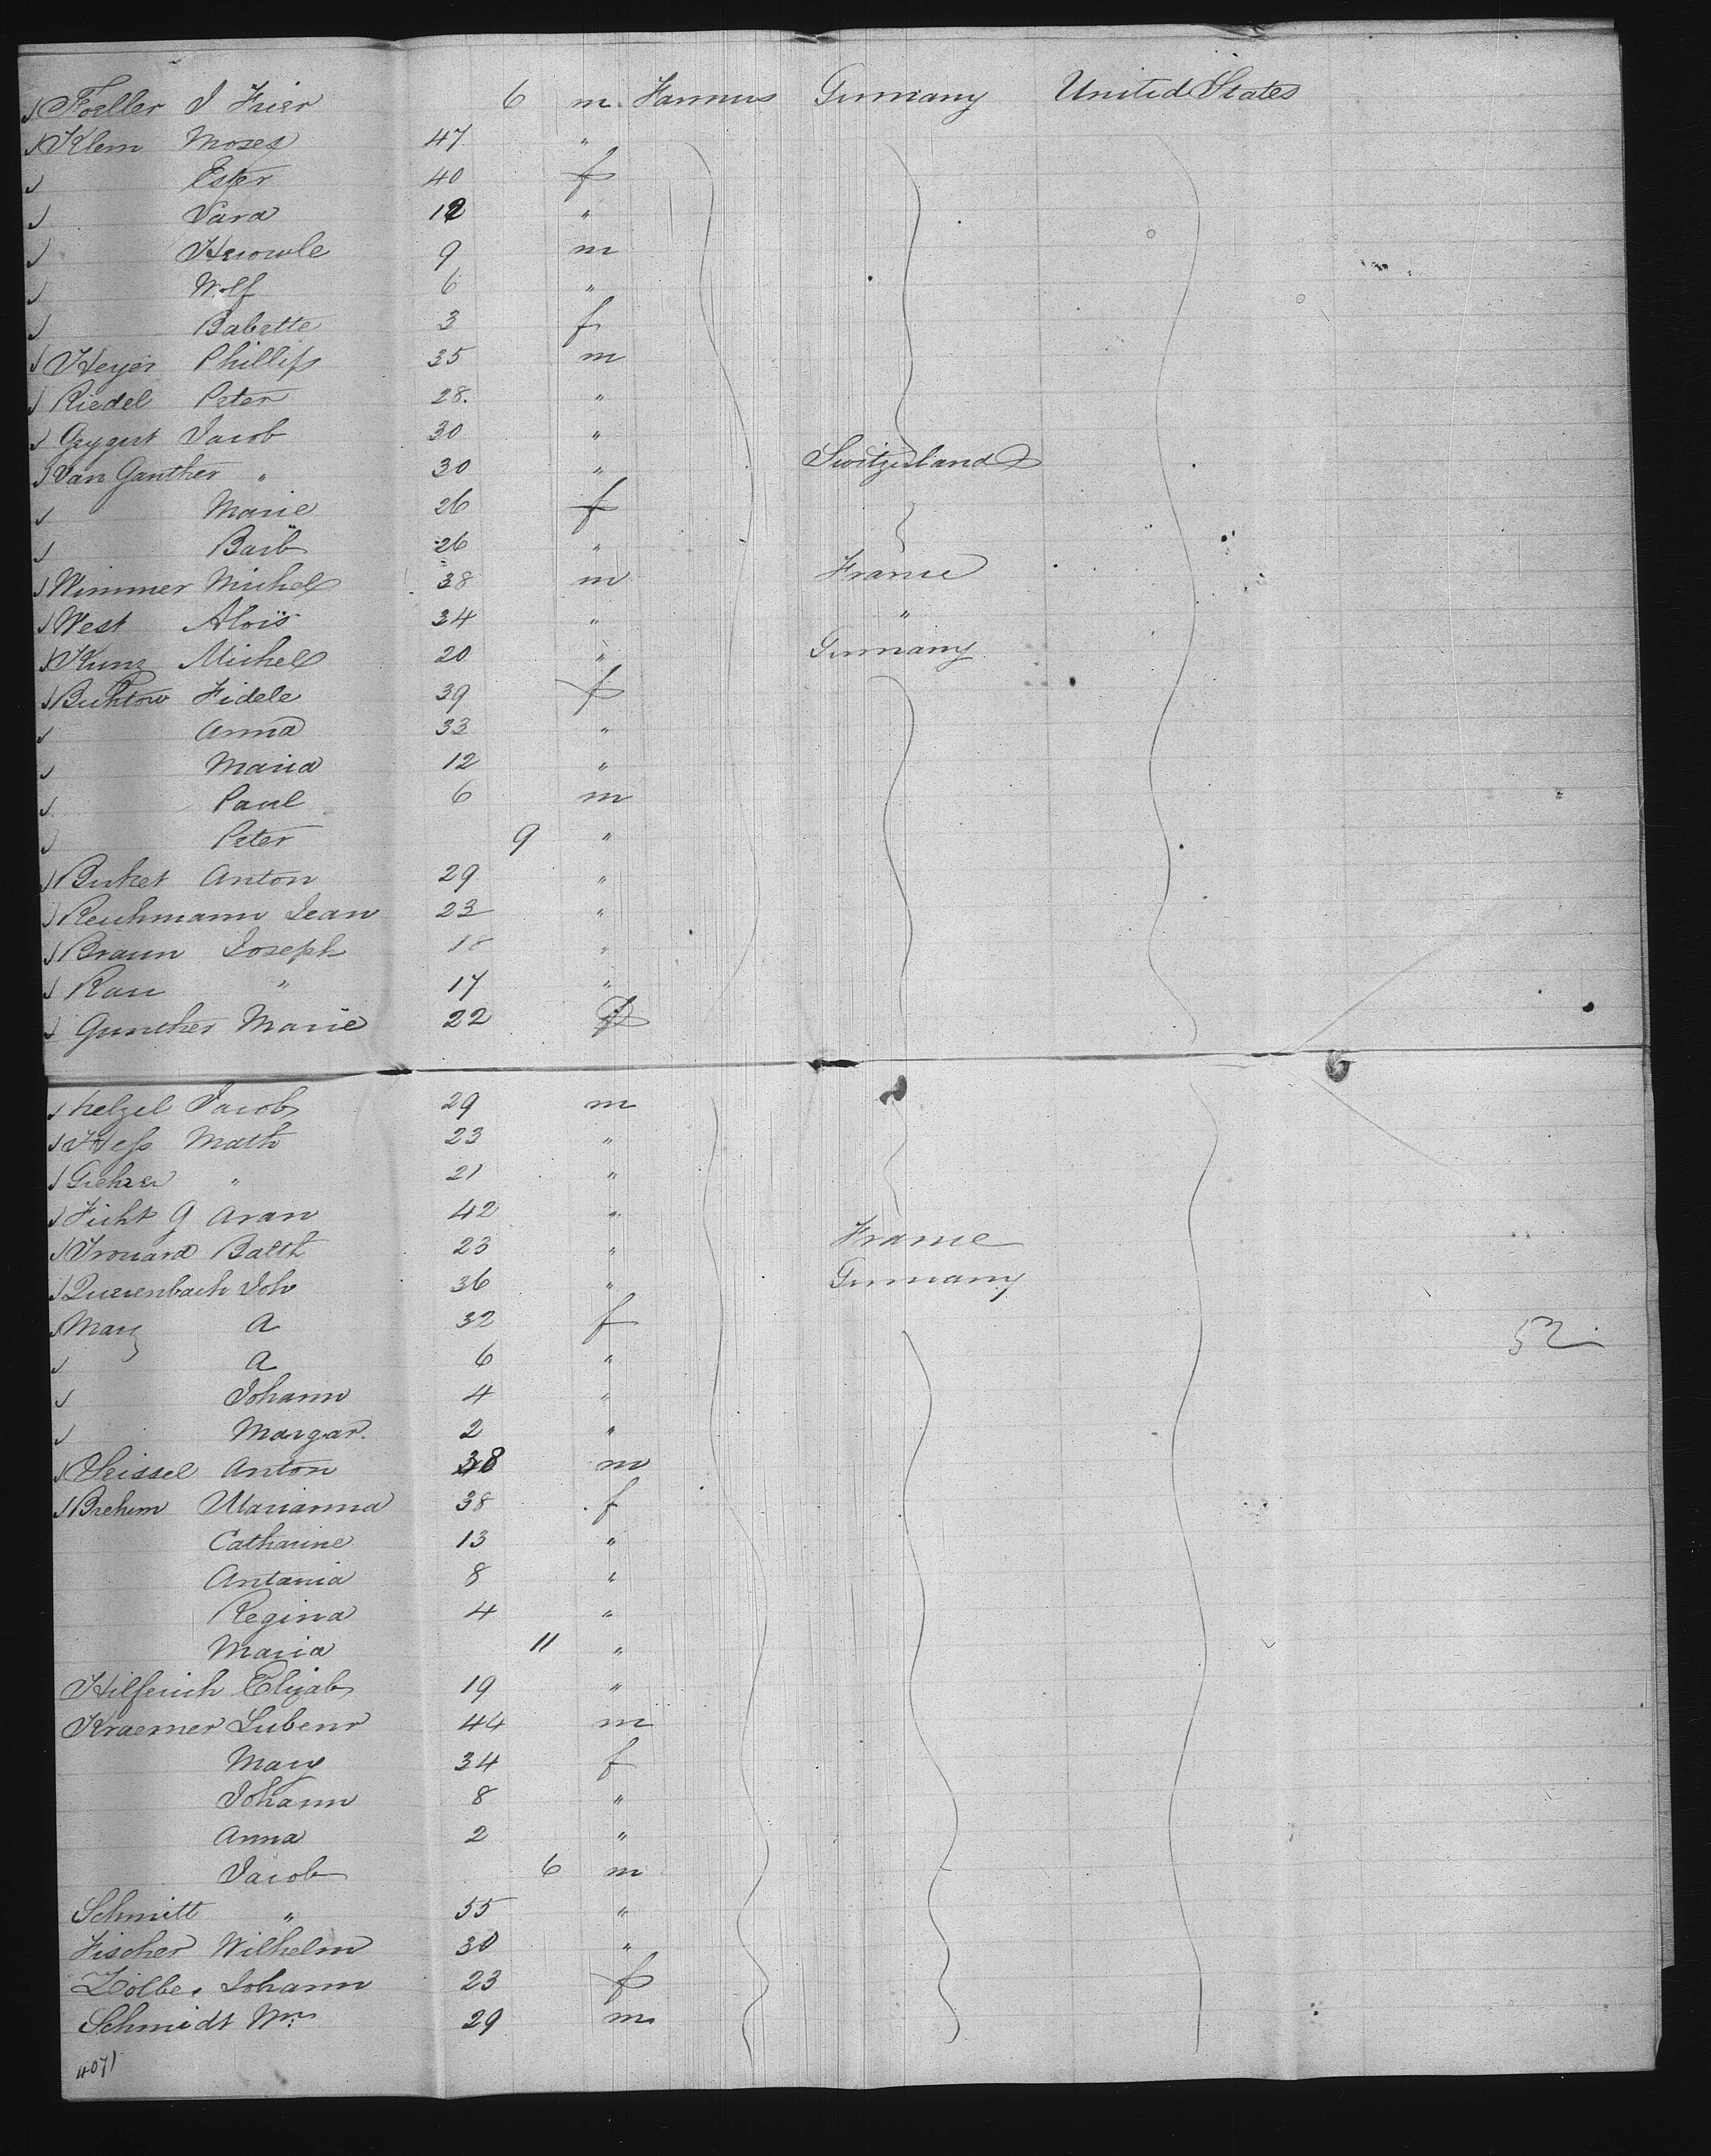 Foeller J Frier 6 m Farmers Germany United States
Klem Moses 47 "
Ester 40 f
Sara 12 "
9 m
Wolf 6 "
Babette 3 f
Heyer Phillip 35 m
Riedel Peter 28. "
Geygert Jacob 30 "
Van Ganther " 30 " Switzerland
Marie 26 f
Barb 26 "
Wimmer Michel 38 m France
West Alois 34 " "
Kunz Michel 20 " Germany
Buhtow Fidele 39 f
Anna 33 "
Maria 12 "
Paul 6 m
Peter 9 "
Buket Anton 29 "
Reichmann Jean 23 "
Braun Joseph 18 "
Rau " 17 "
Gunther Marie 22 f
Helzel Jacob 29 m
Hess Math 23 "
" 21 "
Ficht G Aran 42 "
Trouard Balth 23 " France
Querenbach Joh 36 " Germany
Mary A 32 f
A 6 "
52
Johann 4 "
Margar. 2 "
Seissel Anton 38 m
Brehem Marianna 38 f
Catharine 13 "
Antania 8 "
Regina 4 "
Maria 11 "
Hilferich Elizab 19 "
Kraemer Lubenr 44 m
Mary 34 f
Johann 8 "
Anna 2 "
Jacob 6 m
Schmitt " 55 "
Fischer Wilhelm 30 "
Zolber Johann 23 f
Schmidt Wm 29 m
4071